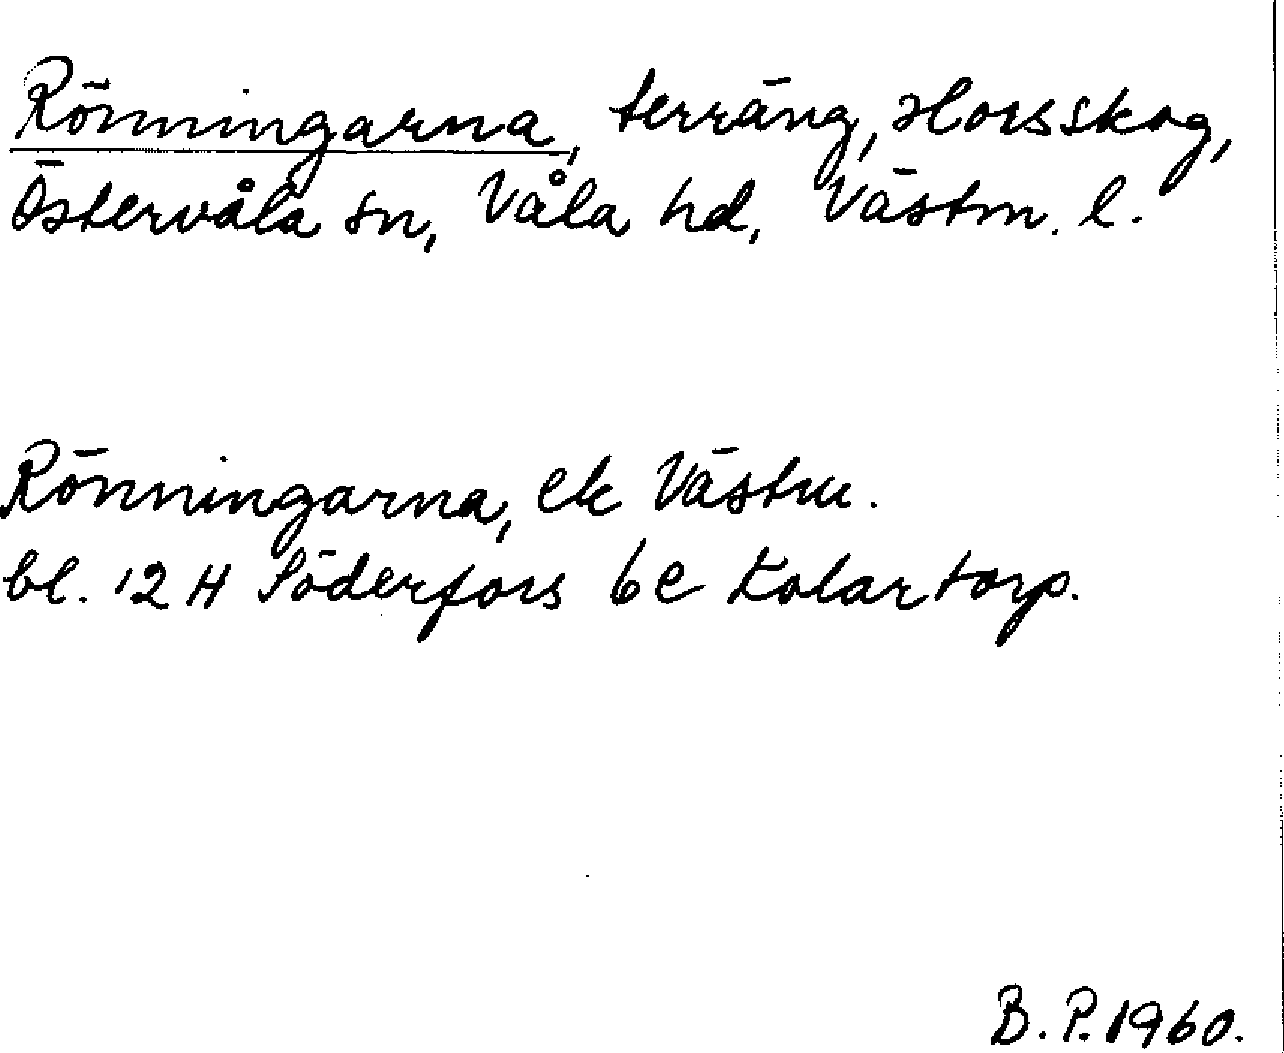 Rönningarna, terräng, Horsskog,
Östervåla sn, Våla hd, Västm. l.
Rönningarna, ek Västm.
bl. 12 H Söderfors 6e Kolartorp.
B. P. 1960.